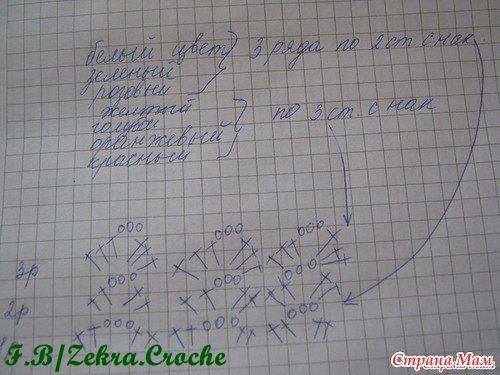 белый цвет } 3 ряда по 2 ст с нак
зеленый
розовый
желтый
голубой
оранжевый } по 3 ст. с нак
красный
3р
2р
F.B/Zekra.Croche
Страна Мам